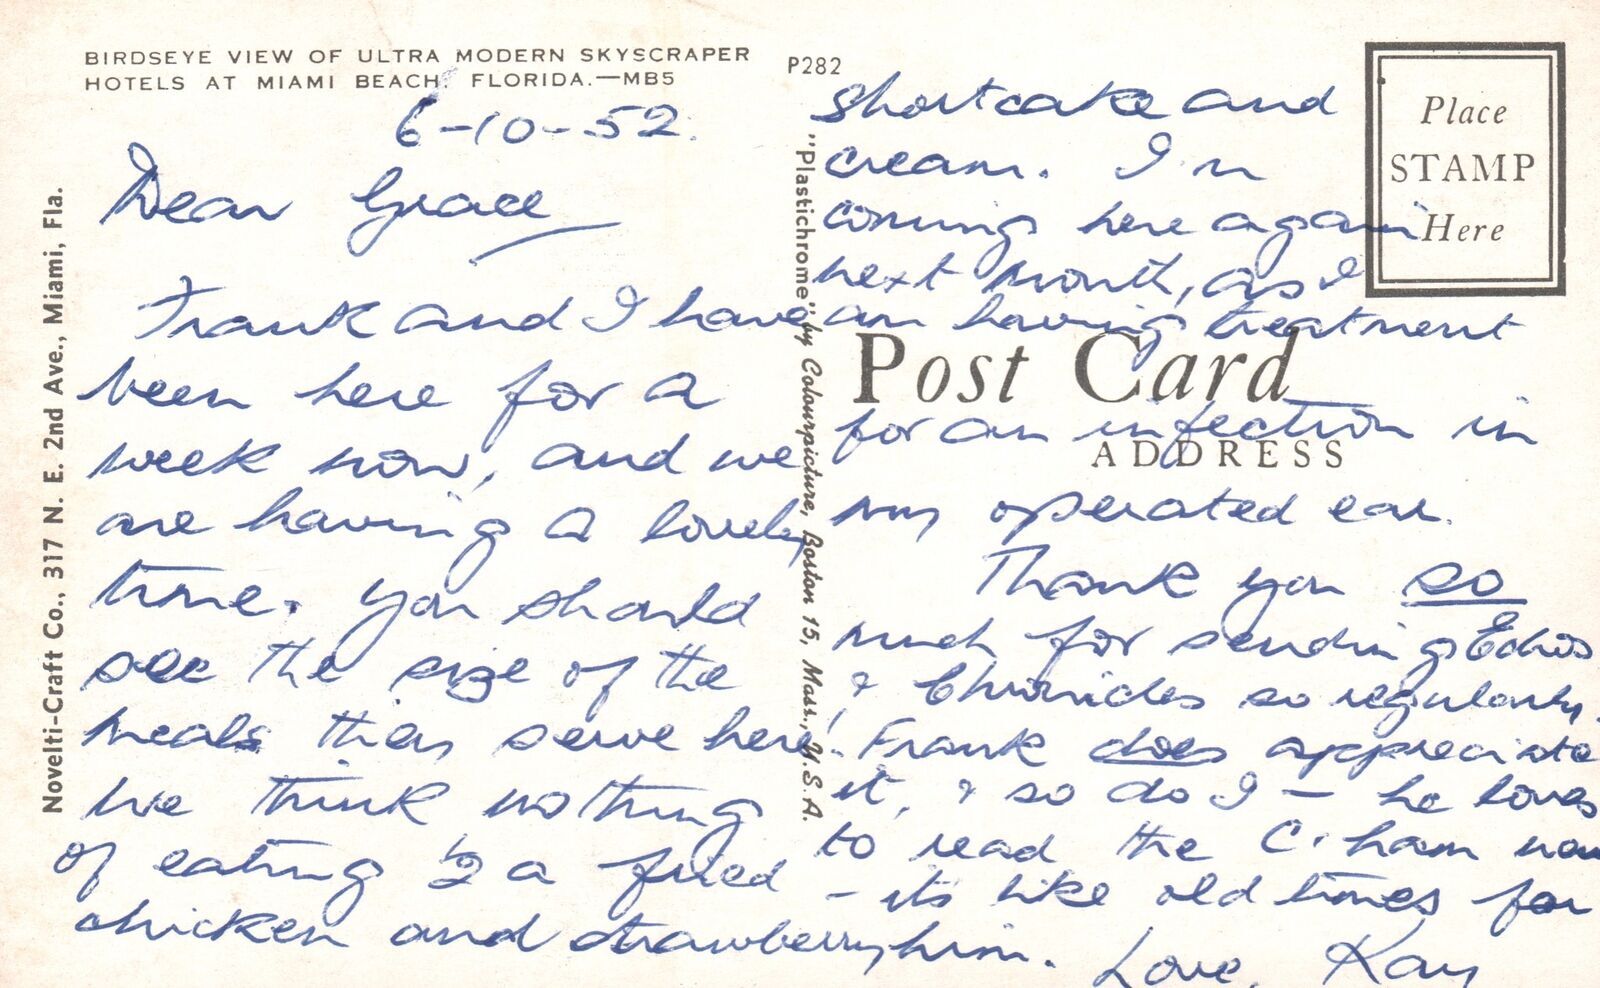 BIRDSEYE VIEW OF ULTRA MODERN SKYSCRAPER
HOTELS AT MIAMI BEACH, FLORIDA.—MB5
P282
6-10-52.
Dear Grace
Frank and I have
been here for a
week now, and we
are having a lovely
time. You should
see the size of the
meals they serve here!
We think nothing
of eating ½ a fried
chicken and strawberry
shortcake and
cream. I'm
coming here again
next month, as I
am having treatment
for an infection in
my operated ear.
Thank you so
much for sending Echos
& Chronicles so regularly.
Frank does appreciate
it, & so do I – he loves
to read the C'ham news
– it's like old times for
him.
Love, Kay
Place
STAMP
Here
Post Card
ADDRESS
Novelti-Craft Co., 317 N. E. 2nd Ave., Miami, Fla.
"Plastichrome" by Colourpicture, Boston 15, Mass., U.S.A.